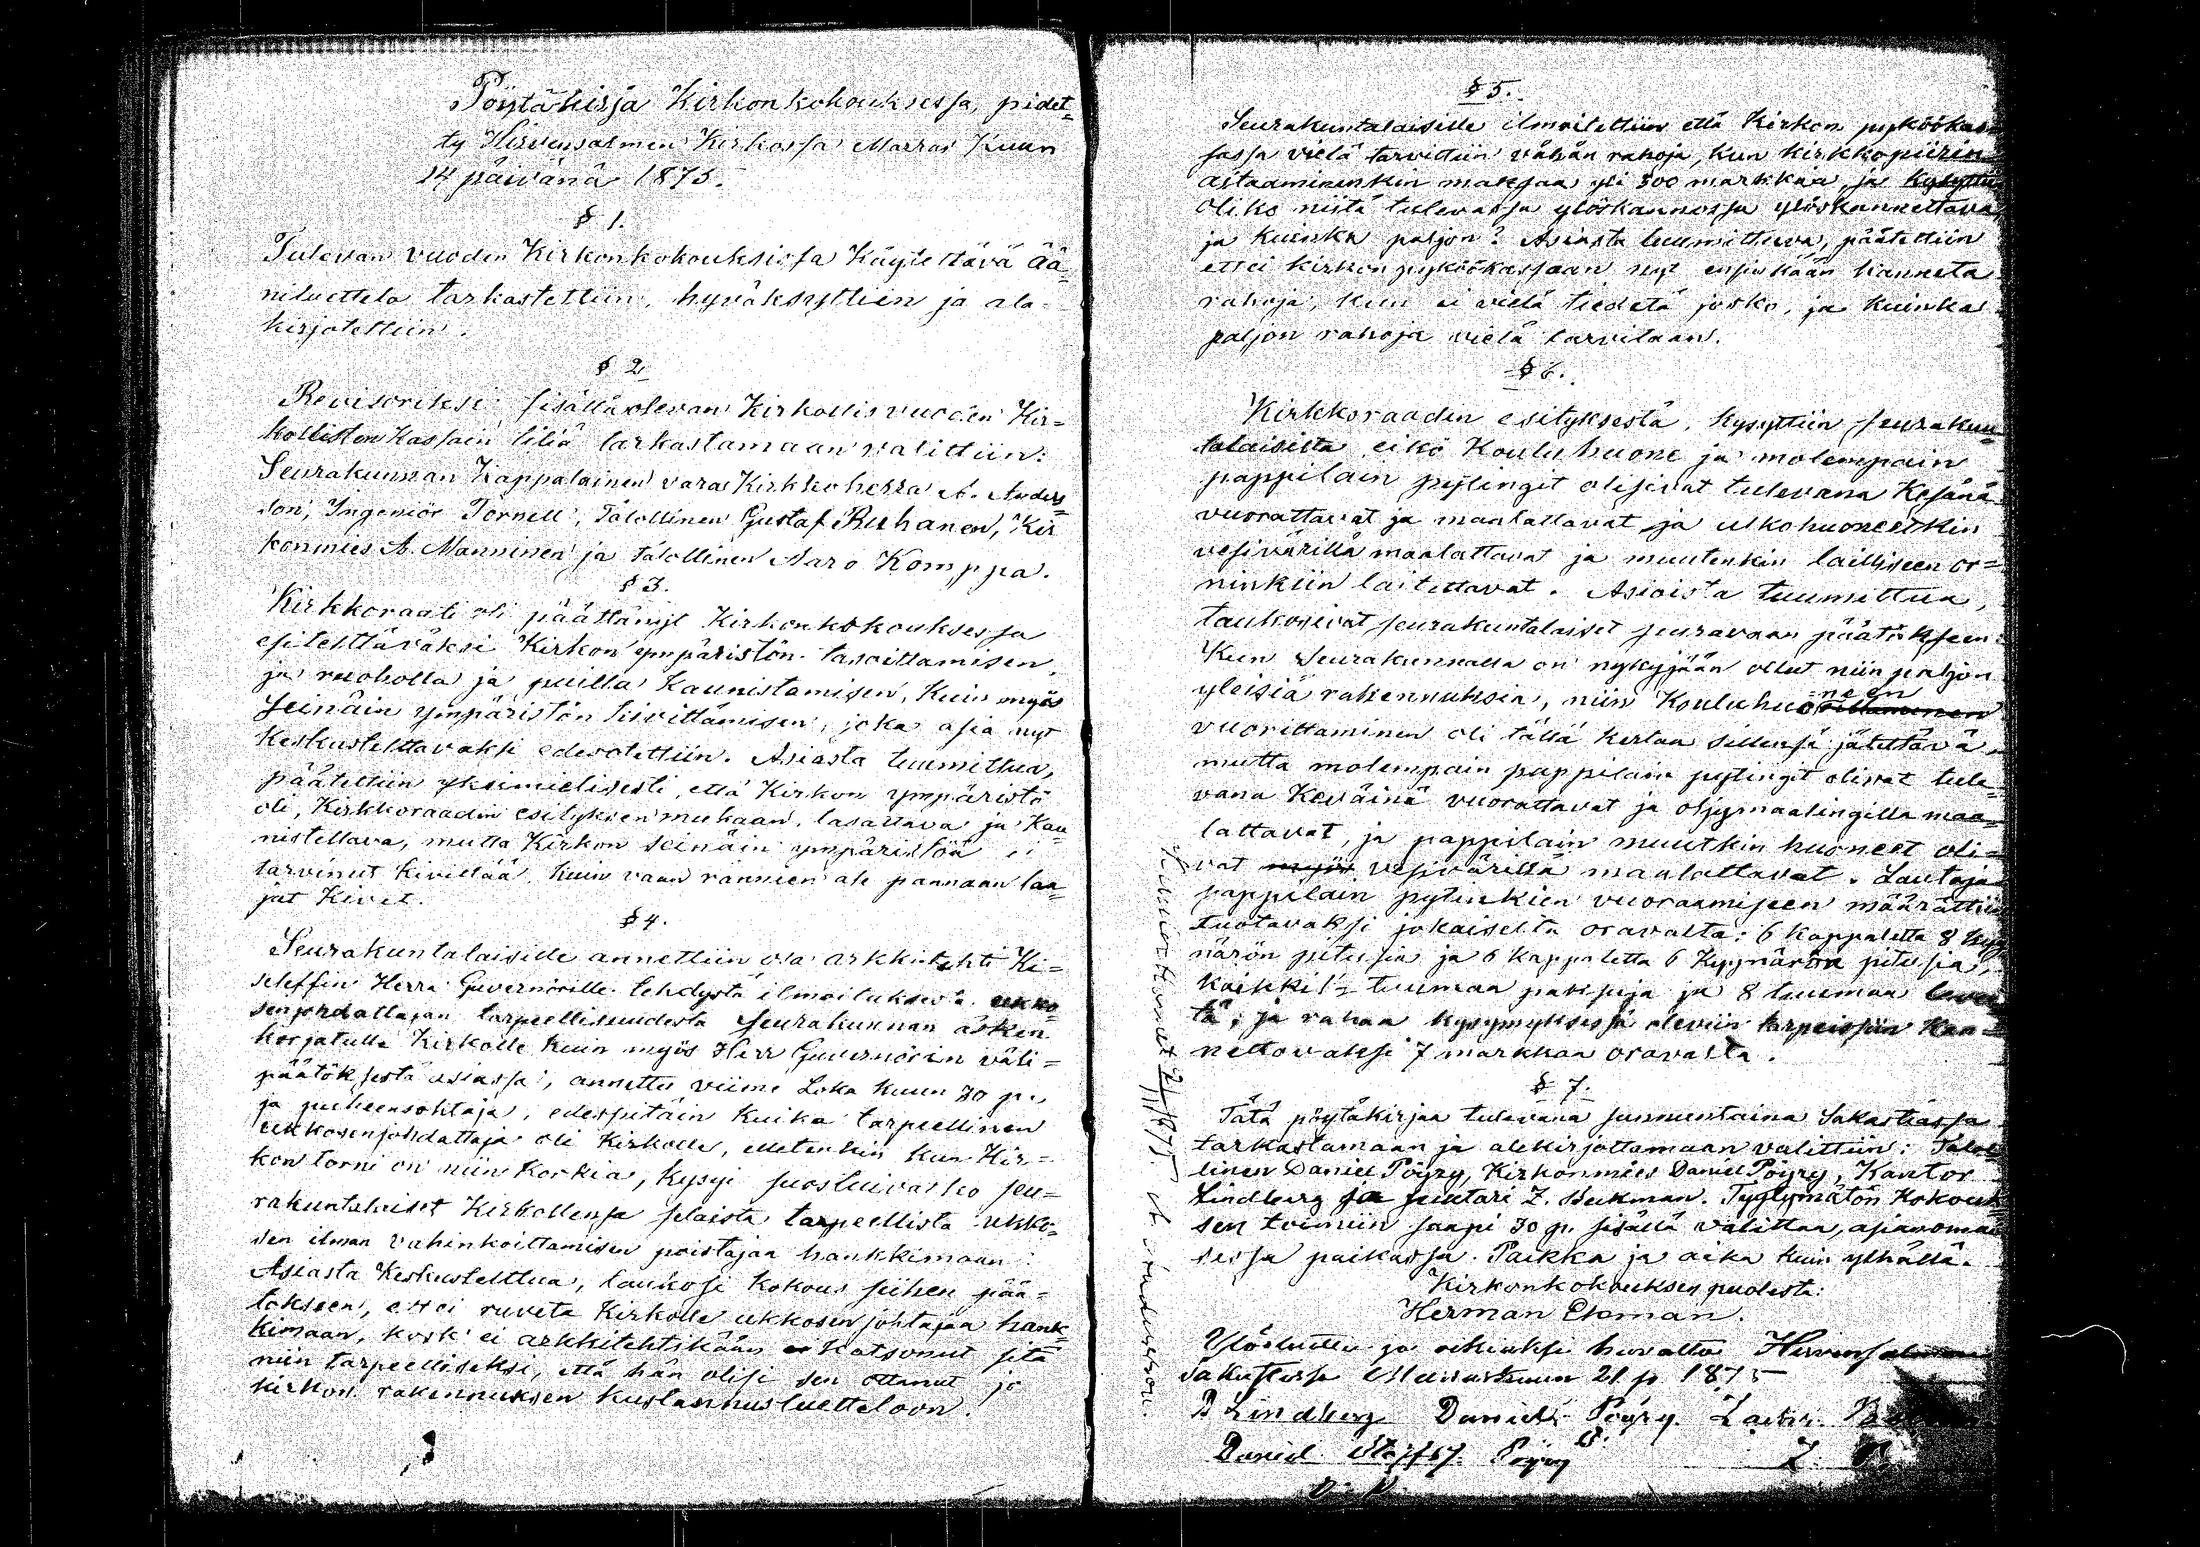 Pöytäkirja Kirkonkokouksessa, pidet=
ty Hirvensalmen Kirkossa Marras Kuun
14 päivänä 1875.
§ 1.
Tulevan vuoden Kirkonkokouksissa Käytettävä ää=
niluettelo tarkastettiin, hyväksyttiin ja ala=
kirjotettiin.
§ 2
Revisoriksi sisälläolevan Kirkollisvuoden Kir=
kollisten Kassain tiliä tarkastamaan valittiin:
Seurakunnan Kappalainen vara Kirkkoherra A. Anders
son, Ingeniör Törnell, Talollinen Gustaf Ruhanen, Kir
konmies A. Manninen ja talollinen Aaro Komppa.
§ 3.
Kirkkoraati oli päättänyt Kirkonkokouksessa
esitelttäväksi Kirkon ympäristön tasoittamisen,
ja ruoholla ja puilla Kaunistamisen, Kuin myös
Seinäin ympäristön kivittämisen, joka asia nyt
Keskustelttavaksi edesotettiin. Asiasta tuumittua,
päätettiin yksimielisesti, että Kirkon ympäristö
oli, Kirkkoraadin esityksen mukaan, tasattava ja Kau
nistettava, mutta Kirkon seinäin ympäristöä ei
tarvinut kivittää, kuin vaan rännien ale pannaan laa=
jat Kivet.
§ 4.
Seurakuntalaisille annettiin osa arkkitehti Ki=
seleffin Herra Guvernörille tehdystä ilmoituksesta ukko
senjohdattajan tarpeellisuudesta seurakunnan äsken
korjatulle Kirkolle, kuin myös Herr Guvernörin väli=
päätöksestä asiassa, annettu viime Loka Kuun 30 p.,
ja puheensohtaja, edespitäin Kuika tarpeellinen
ukkosenjohdattaja oli Kirkolle, olletenkin kun Kir=
kon torni on niin korkia, kysyi suostuivatko seu=
rakuntalaiset Kirkollensa selaista tarpeellista ukko=
sen ilman vahinkoittamisen poistajaa hankkimaan.
Asiasta Keskustelttua, taukosi Kokous siihen pää=
tökseen, ettei ruveta Kirkolle ukkosenjohtajaa hank=
kimaan, kosk' ei arkkitehtikään katsonut sitä
niin tarpeelliseksi, että hän olisi sen ottanut jo
kirkon rakennuksen kustannusluetteloon.
§ 5.
Seurakuntalaisille ilmoitettiin että Kirkon pyköökas
sassa vielä tarvittiin vähän rahoja, kun kirkkopiirin
astaaminenkin maksaa yli 300 markkaa, ja kysyttiin
oliko niistä tulevassa ylöskannossa ylöskannettava
ja kuinka paljon? Asiasta tuumittua, päätettiin
ettei kirkon pyköökassaan nyt ensinkään kanneta
rahoja, kun ei vielä tiedetä josko, ja kuinka
paljon rahoja vielä tarvitaan.
§ 6.
Kirkkoraadin esityksestä, kysyttiin seurakun
talaisilta eikö Kouluhuone ja molempain
pappilain pytingit olisivat tulevana Kesänä
vuorattavat ja maalattavat, ja ulkohuoneetkin
vesivärillä maalattavat ja muutenkin lailliseen or=
ninkiin laitettavat. Asioista tuumittua,
taukosivat seurakuntalaiset seuravaan päätökseen:
Kun Seurakunnalla on nykyjään ollut niin paljon
yleisiä rakennuksia, niin Kouluhuoneen
vuorittaminen oli tällä kertaa sillensä jätettävä,
mutta molempain pappilain pytingit olivat tule=
vana Keväinä vuorattavat ja öljymaalingilla maa=
lattavat, ja pappilain muutkin huoneet oli=
vat myös vesivärillä maalattavat. Lautoja
pappilain pytinkien vuoraamiseen määrättiin
tuotavaksi jokaiselta oravalta: 6 kappaletta 8 kyy
närön pitusia ja 6 kappaletta 6 Kyynärän pitusia,
kaikki 1½ tuumaa paksuja ja 8 tuumaa leve
tä, ja rahaa kysymyksessä oleviin tarpeisiin Kan=
nettavaksi 7 markkaa oravalta.
§ 7.
Tätä pöytäkirjaa tulevana sunnuntaina Sakastiassa
tarkastamaan ja allekirjottamaan valittiin: Talol
linen Daniel Pöyry, Kirkonmies Daniel Pöyry, Kantor
Lindberg ja suutari Z. Bukman. Tyytymätön Kokouk
sen toimiin saapi 30 p. sisällä valittaa, asianomai
sessa paikassa. Paikka ja aika kuin ylhällä.
Kirkonkokouksen puolesta:
Herman Ekman.
Ylösluettu ja oikiaksi havattu Hirvensalmen
Sakastissa Marraskuun 21 p. 1875
B Lindberg Daniel Pöyry
Daniel Pöyry